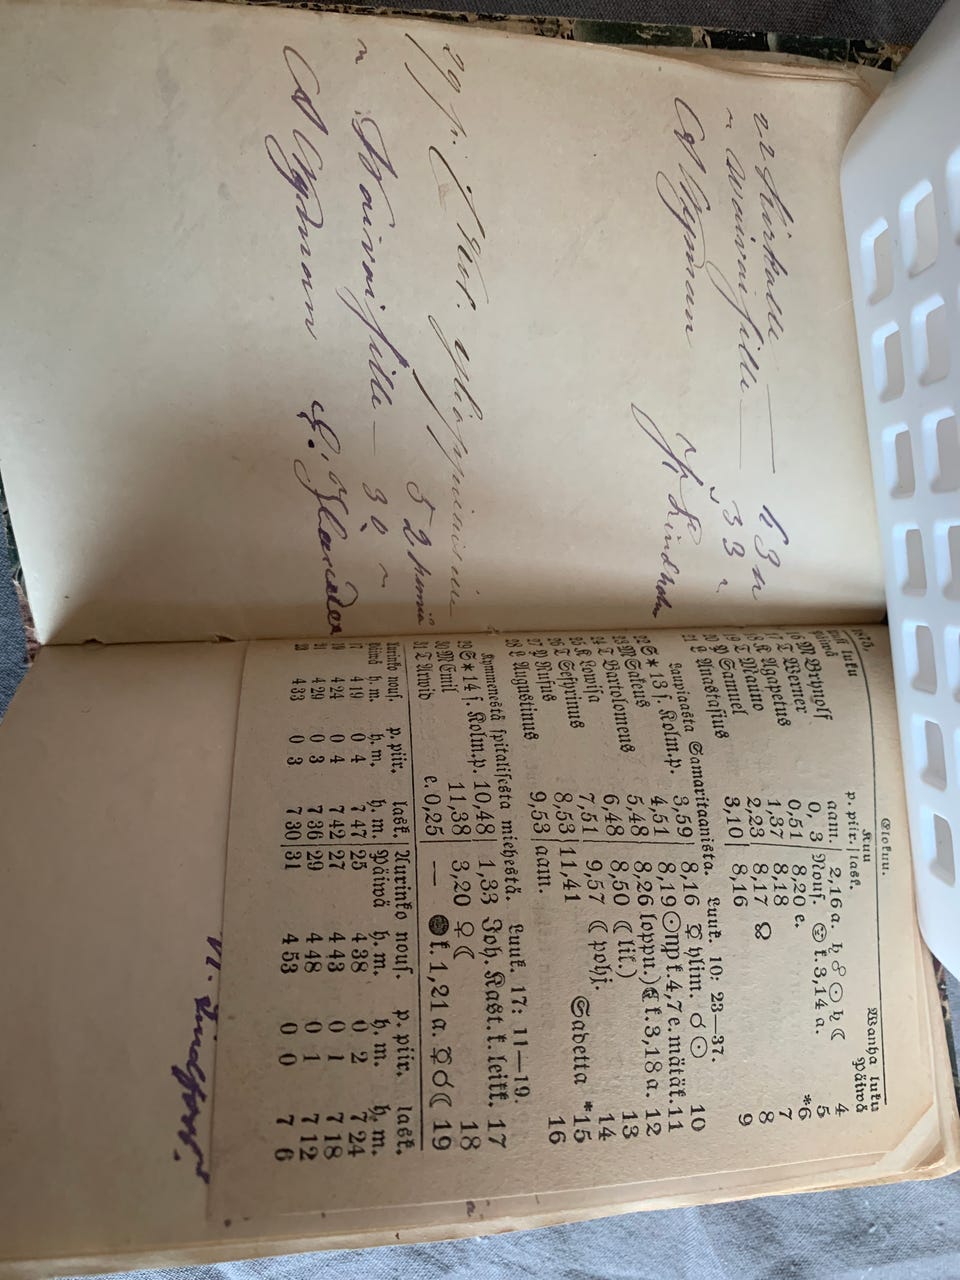 22 Kirkalle — 63 n
" waivaisille — 33 "
A Nyman
Lindholm
29 p.
Waivaisille — 30 "
52 penniä
A Nyman
1875.
Elokuu.
Uusi luku
Kuu
Wanha luku
päiwä
p. piir. lask.
Päiwä
aam. 2,16 a. ♄ ☍ ☉ ♄ ☾ 4
16 M Brynolf 0, 3 Nous. ☺ k. 3,14 a. 5
17 T Werner 0,51 8,20 e. *6
18 K Agapetus 1,37 8,18 7
19 T Manno 2,23 8,17 8
20 P Samuel 3,10 8,16 9
21 L Anastasius
Laupiasta Samaritaanista. Luuk. 10: 23—37.
22 S * 13 s. Kolm.p. 3,59 8,16 ☿ ylim. ☌ ☉ 10
23 M Sakeus 4,51 8,19 ☉ mp k. 4,7 e. mätäk. 11
24 T Bartolomeus 5,48 8,26 loppu.) ☾ k. 3,18 a. 12
25 K Lowisa 6,48 8,50 (☾ lik.) 13
26 T Sefyrinus 7,51 9,57 ☾ pohj. 14
27 P Rufus 8,53 11,41 Sadetta *15
28 L Augustinus 9,53 aam. 16
Kymmenestä spitalisesta miehestä. Luuk. 17: 11—19.
29 S * 14 s. Kolm.p. 10,48 1,33 Joh. Kast. k. leikk. 17
30 M Emil 11,38 3,20 ♀ ☾ 18
31 T Arwid e. 0,25 — ● k. 1,21 a. ☿ ☌ ☾ 19
Aurinko nous. p. piir. lask. Aurinko nous. p. piir. lask.
Päiwä h. m. h. m. h. m. Päiwä h. m. h. m. h. m.
17 4 19 0 4 7 47 25 4 38 0 2 7 24
19 4 24 0 4 7 42 27 4 43 0 1 7 18
21 4 29 0 3 7 36 29 4 48 0 1 7 12
23 4 33 0 3 7 30 31 4 53 0 0 7 6